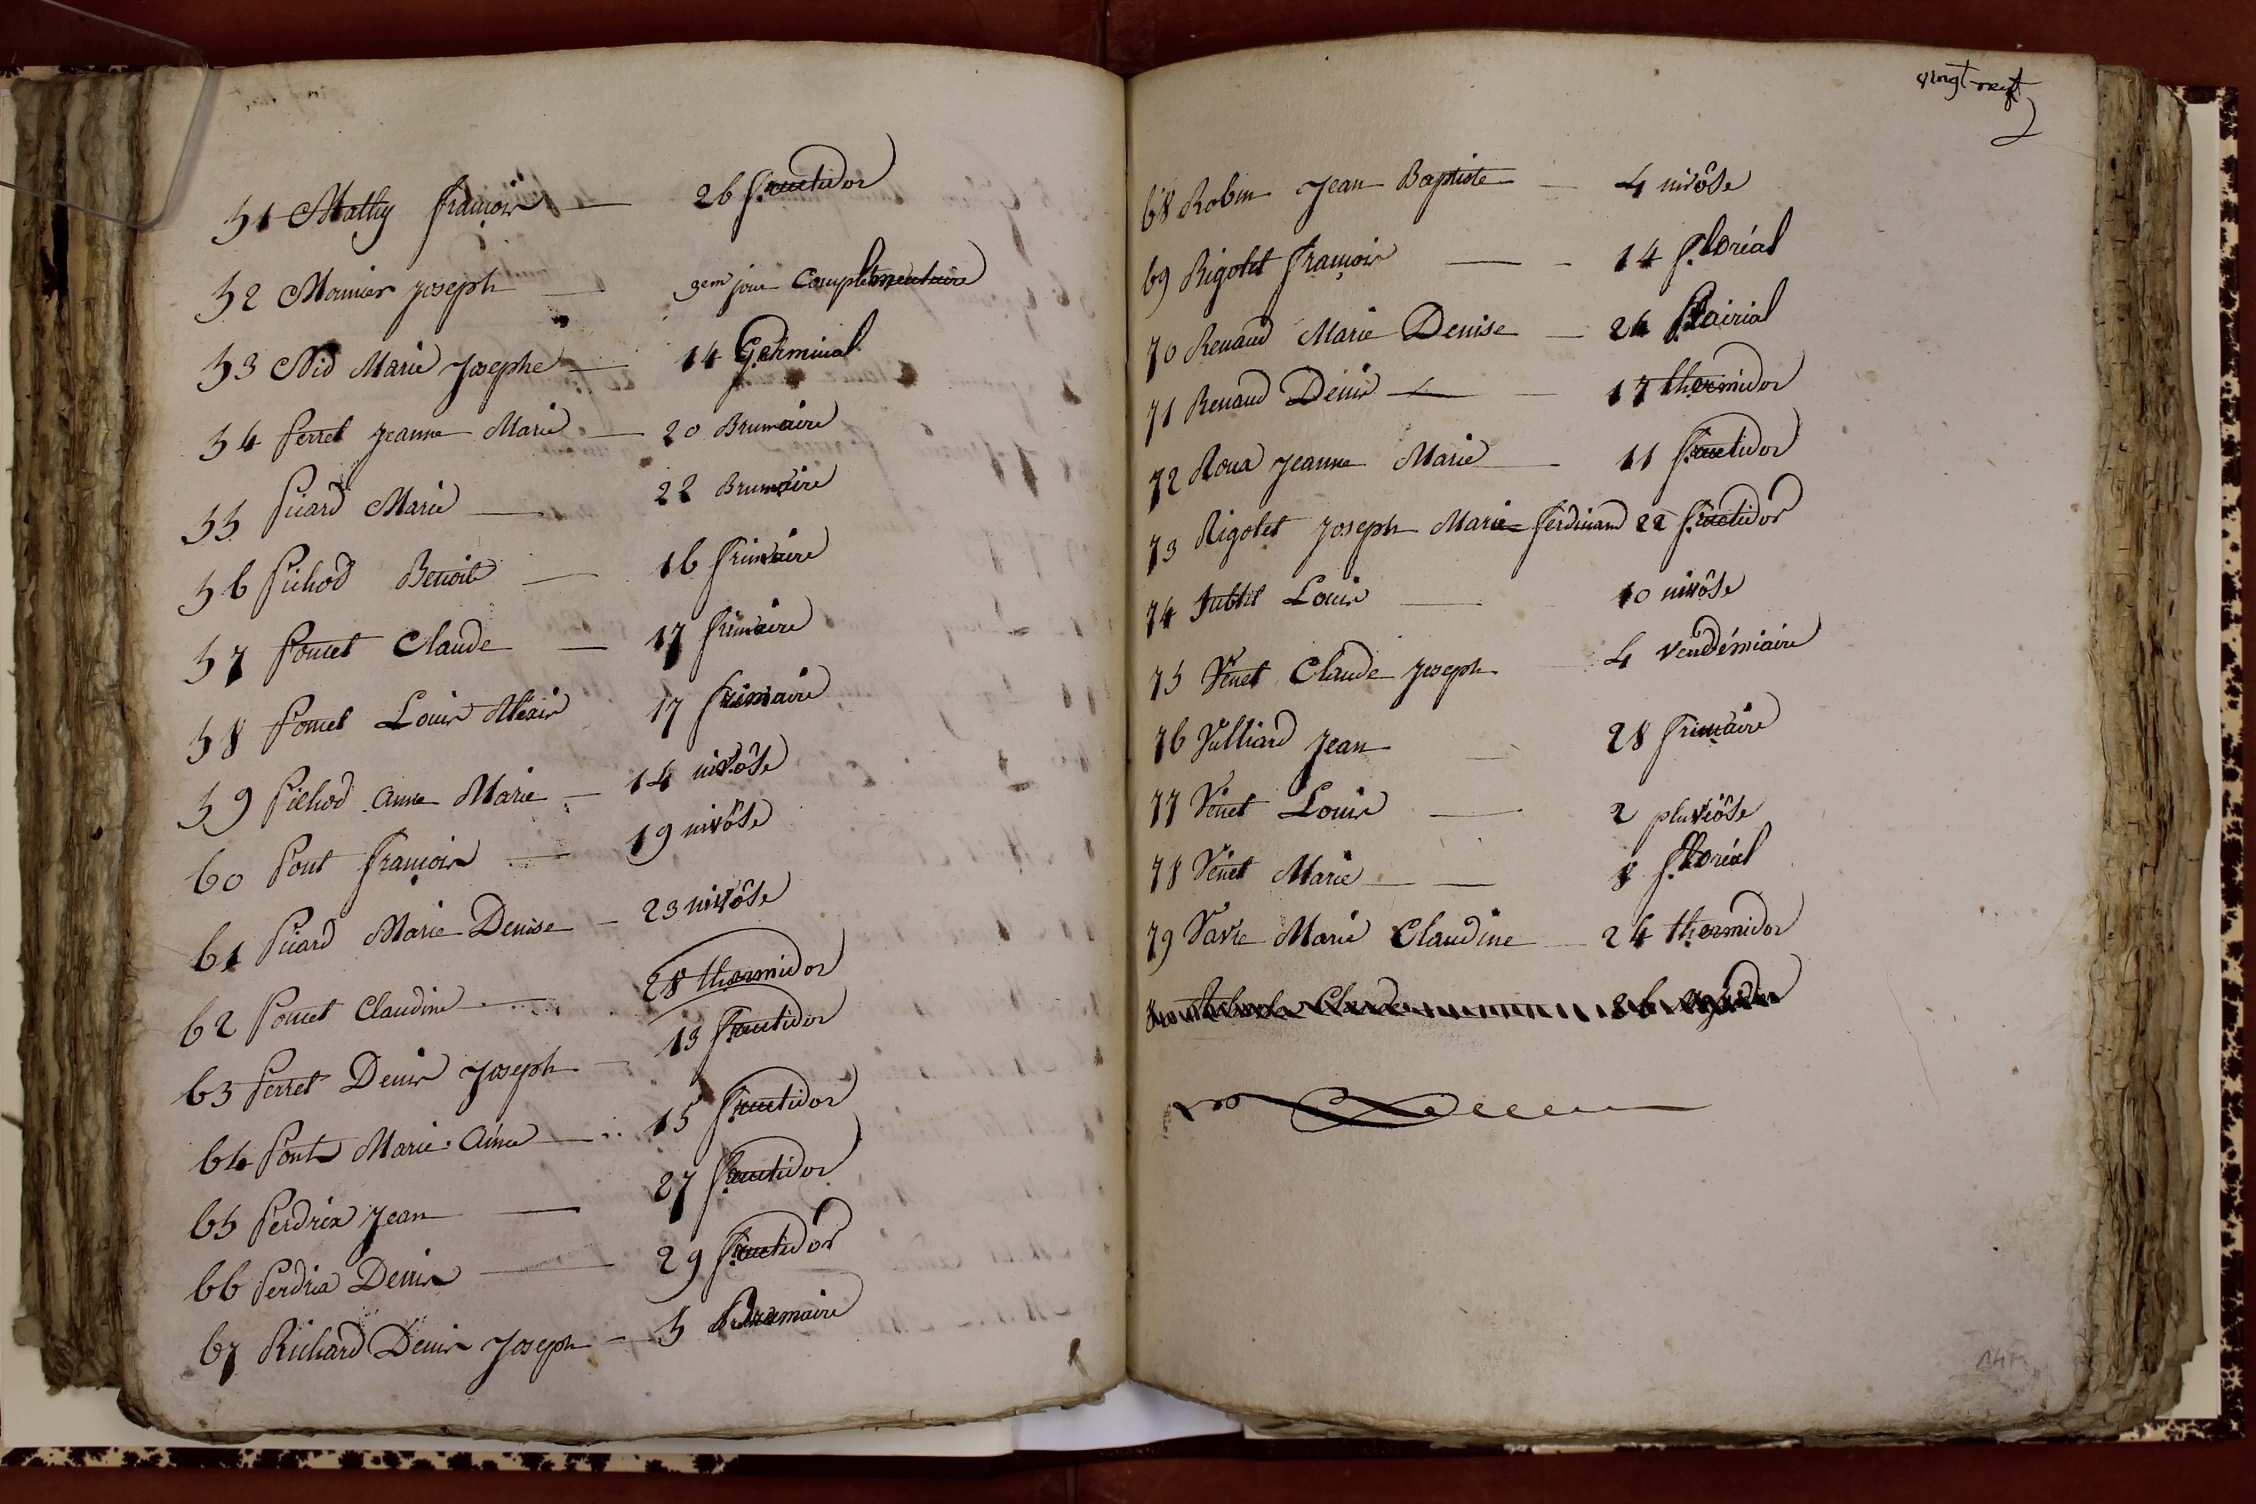 51 Mathy françois — 26 fructidor
52 Monnier joseph — 3em jour Complémentaire
53 Nid Marie Josephe — 14 Germinal
54 Perret Jeanne Marie — 20 Brumaire
55 Picard Marie — 22 Brumaire
56 Pichod Benoit — 16 frimaire
57 Poncet Claude — 17 frimaire
58 Poncet Louis Alexis 17 frimaire
59 Pichod Anne Marie — 14 nivôse
60 Pont françois — 19 nivôse
61 Picard Marie Denise — 23 nivôse
62 Poncet Claudine — 28 thermidor
63 Perret Denis Joseph — 13 fructidor
64 Pont Marie Aimée — 15 fructidor
65 Perdrix Jean — 27 fructidor
66 Perdrix Denis — 29 fructidor
67 Richard Denis Joseph — 5 Brumaire
vingt-neuf
68 Robin Jean Baptiste — 4 nivôse
69 Rigolet françois — 14 floréal
70 Renaud Marie Denise — 24 Prairial
71 Renaud Denis — 17 thermidor
72 Roux Jeanne Marie — 11 fructidor
73 Rigolet Joseph Marie ferdinand 22 fructidor
74 Subtil Louis — 10 nivôse
75 Venet Claude Joseph 4 vendémiaire
76 Vulliard Jean — 28 frimaire
77 Venet Louis — 2 pluviôse
78 Venet Marie — 8 floréal
79 Vavre Marie Claudine — 24 thermidor